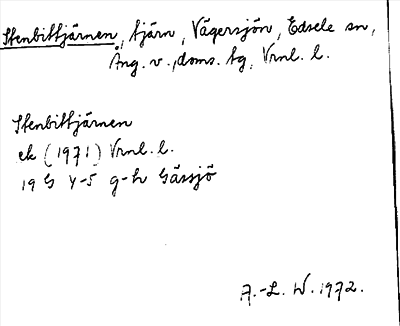 Stenbittjärnen, tjärn, Vägersjön, Edsele sn,
Ång. v., doms. tg, Vrnl. l.
Stenbittjärnen
ek (1971) Vrnl. l.
19 G Y-5 g-h Gåssjö
A.-L. W. 1972.